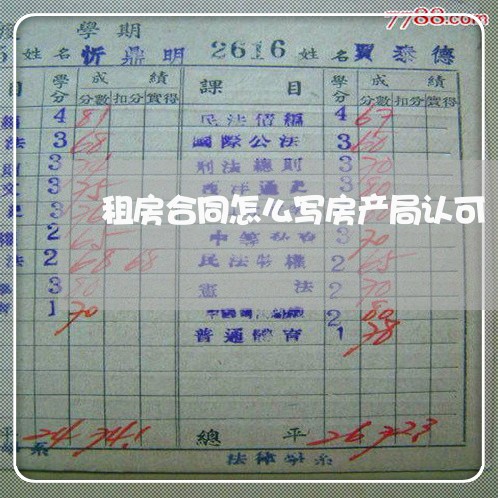 7788.com
學期
姓名 忻鼎明 2616 姓名 賈泰德
目 學分 成績 課目 學分 成績
分數 扣分 實得 分數 扣分 實得
4 81 民法債編 4 67
法 3 68 國際公法 3 60
3 刑法總則 3 70
文 3 75 西洋通史 3
租房合同怎么写房产局认可
2 65 3 70
法 2 68 68 民法物權 2 65
3 80 憲法 2 70
育 1 70 2 80
普通體育 1 78
平 24 74.1 總平 26 72.3
系 法律學系